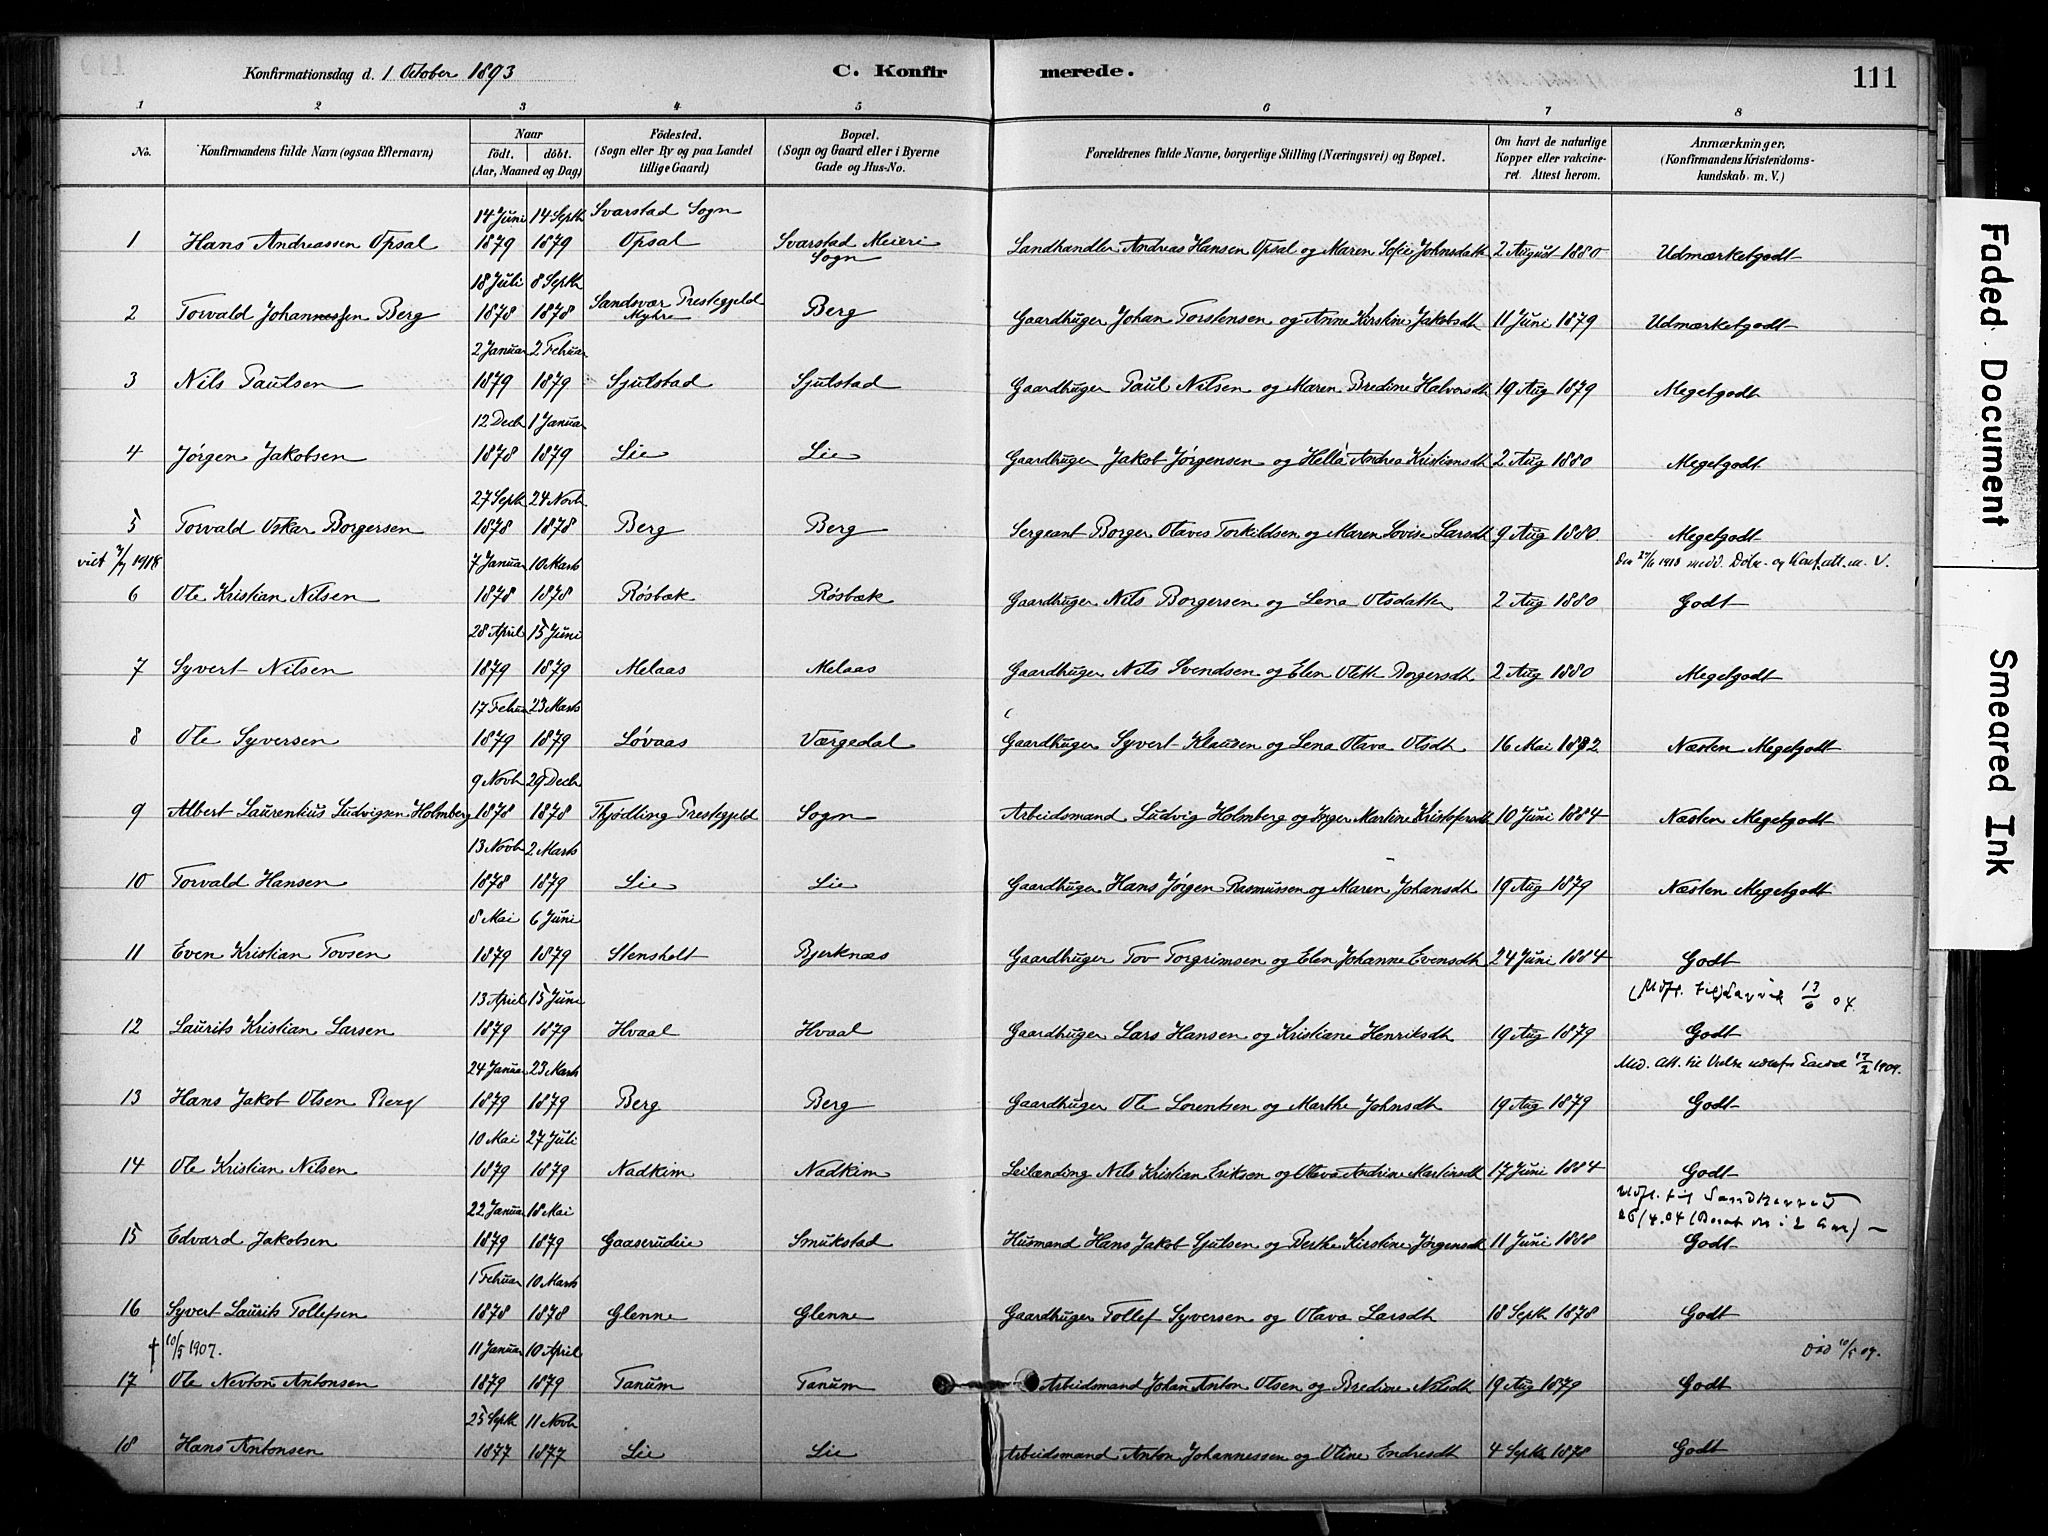 Konfirmationsdag d. 1 October 1893 C. Konfirmerede. 111
1 2 3 4 5 6 7 8
No. Konfirmandens fulde Navn (ogsaa Efternavn) Naar født. døbt. (Aar, Maaned og Dag) Fødested. (Sogn eller By og paa Landet tillige Gaard) Bopæl. (Sogn og Gaard eller i Byerne Gade og Hus-No. Forældrenes fulde Navne, borgerlige Stilling (Næringsvei) og Bopæl. Om havt de naturlige Kopper eller vakcineret. Attest herom. Anmærkninger, (Konfirmandens Kristendomskundskab m. V.)
14 Juni 14 Septb Svarstad Sogn
1 Hans Andreassen Opsal 1879 1879 Opsal Svarstad Meieri Sogn Landhandler Andreas Hansen Opsal og Maren Sofie Johnsdatter 2 August 1880 Udmærketgodt
18 Juli 8 Septb
2 Torvald Johannessen Berg 1878 1878 Sandsvær Prestegjeld Myhre Berg Gaardbruger Johan Torstensen og Anne Kirstine Jakobsdt 11 Juni 1879 Udmærketgodt
2 Januar 2 Februar
3 Nils Paulsen 1879 1879 Sjulstad Sjulstad Gaardbruger Paul Nilsen og Maren Bredine Halvorsdt 19 Aug 1879 Megetgodt
12 Decb 1 Januar
4 Jørgen Jakobsen 1878 1879 Lie Lie Gaardbruger Jakob Jørgensen og Hella Andrea Kristiansdt 2 Aug 1880 Megetgodt
27 Septb 24 Novb
5 Torvald Oskar Borgersen 1878 1878 Berg Berg Sergeant Borger Olaves Torkildsen og Maren Lovise Larsdt 9 Aug 1880 Megetgodt
1918 7 Januar 10 Marts 1918 medd. m. V.
6 Ole Kristian Nilsen 1878 1878 Røsbæk Røsbæk Gaardbruger Nils Borgersen og Lena Olsdatter 2 Aug 1880 Godt
28 April 15 Juni
7 Syvert Nilsen 1879 1879 Melaas Melaas Gaardbruger Nils Svendsen og Elen Olette Borgersdt 2 Aug 1880 Megetgodt
17 Februar 23 Marts
8 Ole Syversen 1879 1879 Løvaas Værgedal Gaardbruger Syvert Klausen og Lena Olava Olsdt 16 Mai 1892 Næsten Megetgodt
9 Novb 29 Decb
9 Albert Laurentius Ludvigsen Holmberg 1878 1878 Thjødling Prestegjeld Sogn Arbeidsmand Ludvig Holmberg og Inger Martine Kristofersdt 10 Juni 1884 Næsten Megetgodt
13 Novb 2 Marts
10 Torvald Hansen 1878 1879 Lie Lie Gaardbruger Hans Jørgen Rasmussen og Maren Johansdt 19 Aug 1879 Næsten Megetgodt
8 Mai 6 Juni
11 Even Kristian Tovsen 1879 1879 Stensholt Bjerknæs Gaardbruger Tov Torgrimsen og Elen Johanne Evensdt 24 Juni 1884 Godt
13 April 15 Juni (Udfl. til Larvik 13/6 04.
12 Laurits Kristian Larsen 1879 1879 Hvaal Hvaal Gaardbruger Lars Hansen og Kristiane Henriksdt 19 Aug 1879 Godt
24 Januar 23 Marts Med. Att. til 1909.
13 Hans Jakob Olsen Berg 1879 1879 Berg Berg Gaardbruger Ole Lorentsen og Marthe Johnsdt 19 Aug 1879 Godt
10 Mai 27 Juli
14 Ole Kristian Nilsen 1879 1879 Nadkim Nadkim Leilænding Nils Kristian Eriksen og Olava Andrine Martinsdt 17 Juni 1884 Godt
22 Januar 18 Mai Udfl. til Sandeherred
26/4.04 (Boret der i 2 Aar) —
15 Edvard Jakobsen 1879 1879 Gaaserudeie Smukstad Husmand Hans Jakob Sjulsen og Berthe Kirstine Jørgensdt 11 Juni 1888 Godt
1 Februar 10 Marts
16 Syvert Laurits Tollefsen 1878 1878 Glenne Glenne Gaardbruger Tollef Syversen og Olava Larsdt 18 Septb 1878 Godt
† 10/5 1907. 11 Januar 10 April Død 10/5 07.
17 Ole Nevton Antonsen 1879 1879 Tanum Tanum Arbeidsmand Johan Anton Olsen og Bredine Nilsdt 19 Aug 1879 Godt
25 Septb 11 Novb
18 Hans Antonsen 1877 1877 Lie Lie Arbeidsmand Anton Johannessen og Oline Endresdt 4 Septb 1878 Godt
Faded Document
Smeared Ink